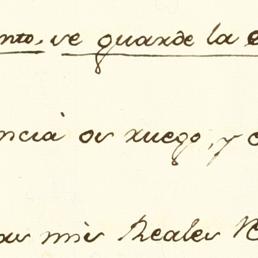 nto, se guarde la
ncia os ruego, y
mis Reales